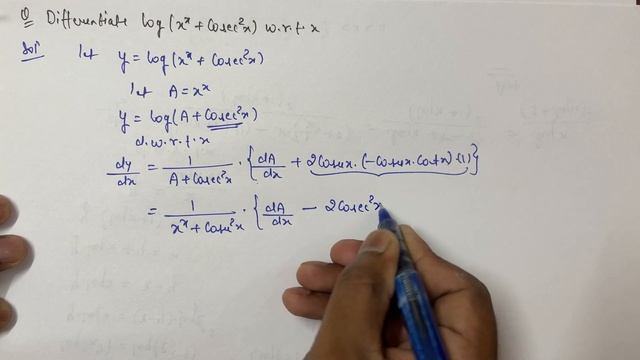 Q Differentiate log(x^x + Cosec²x) w.r.t x
Sol Let y = log(x^x + Cosec²x)
let A = x^x
y = log(A + Cosec²x)
d.w.r.t.x
dy/dx = 1/(A + Cosec²x) · {dA/dx + 2Cosecx · (-Cosecx · Cotx) · (1)}
= 1/(x^x + Cosec²x) · {dA/dx - 2Cosec²x